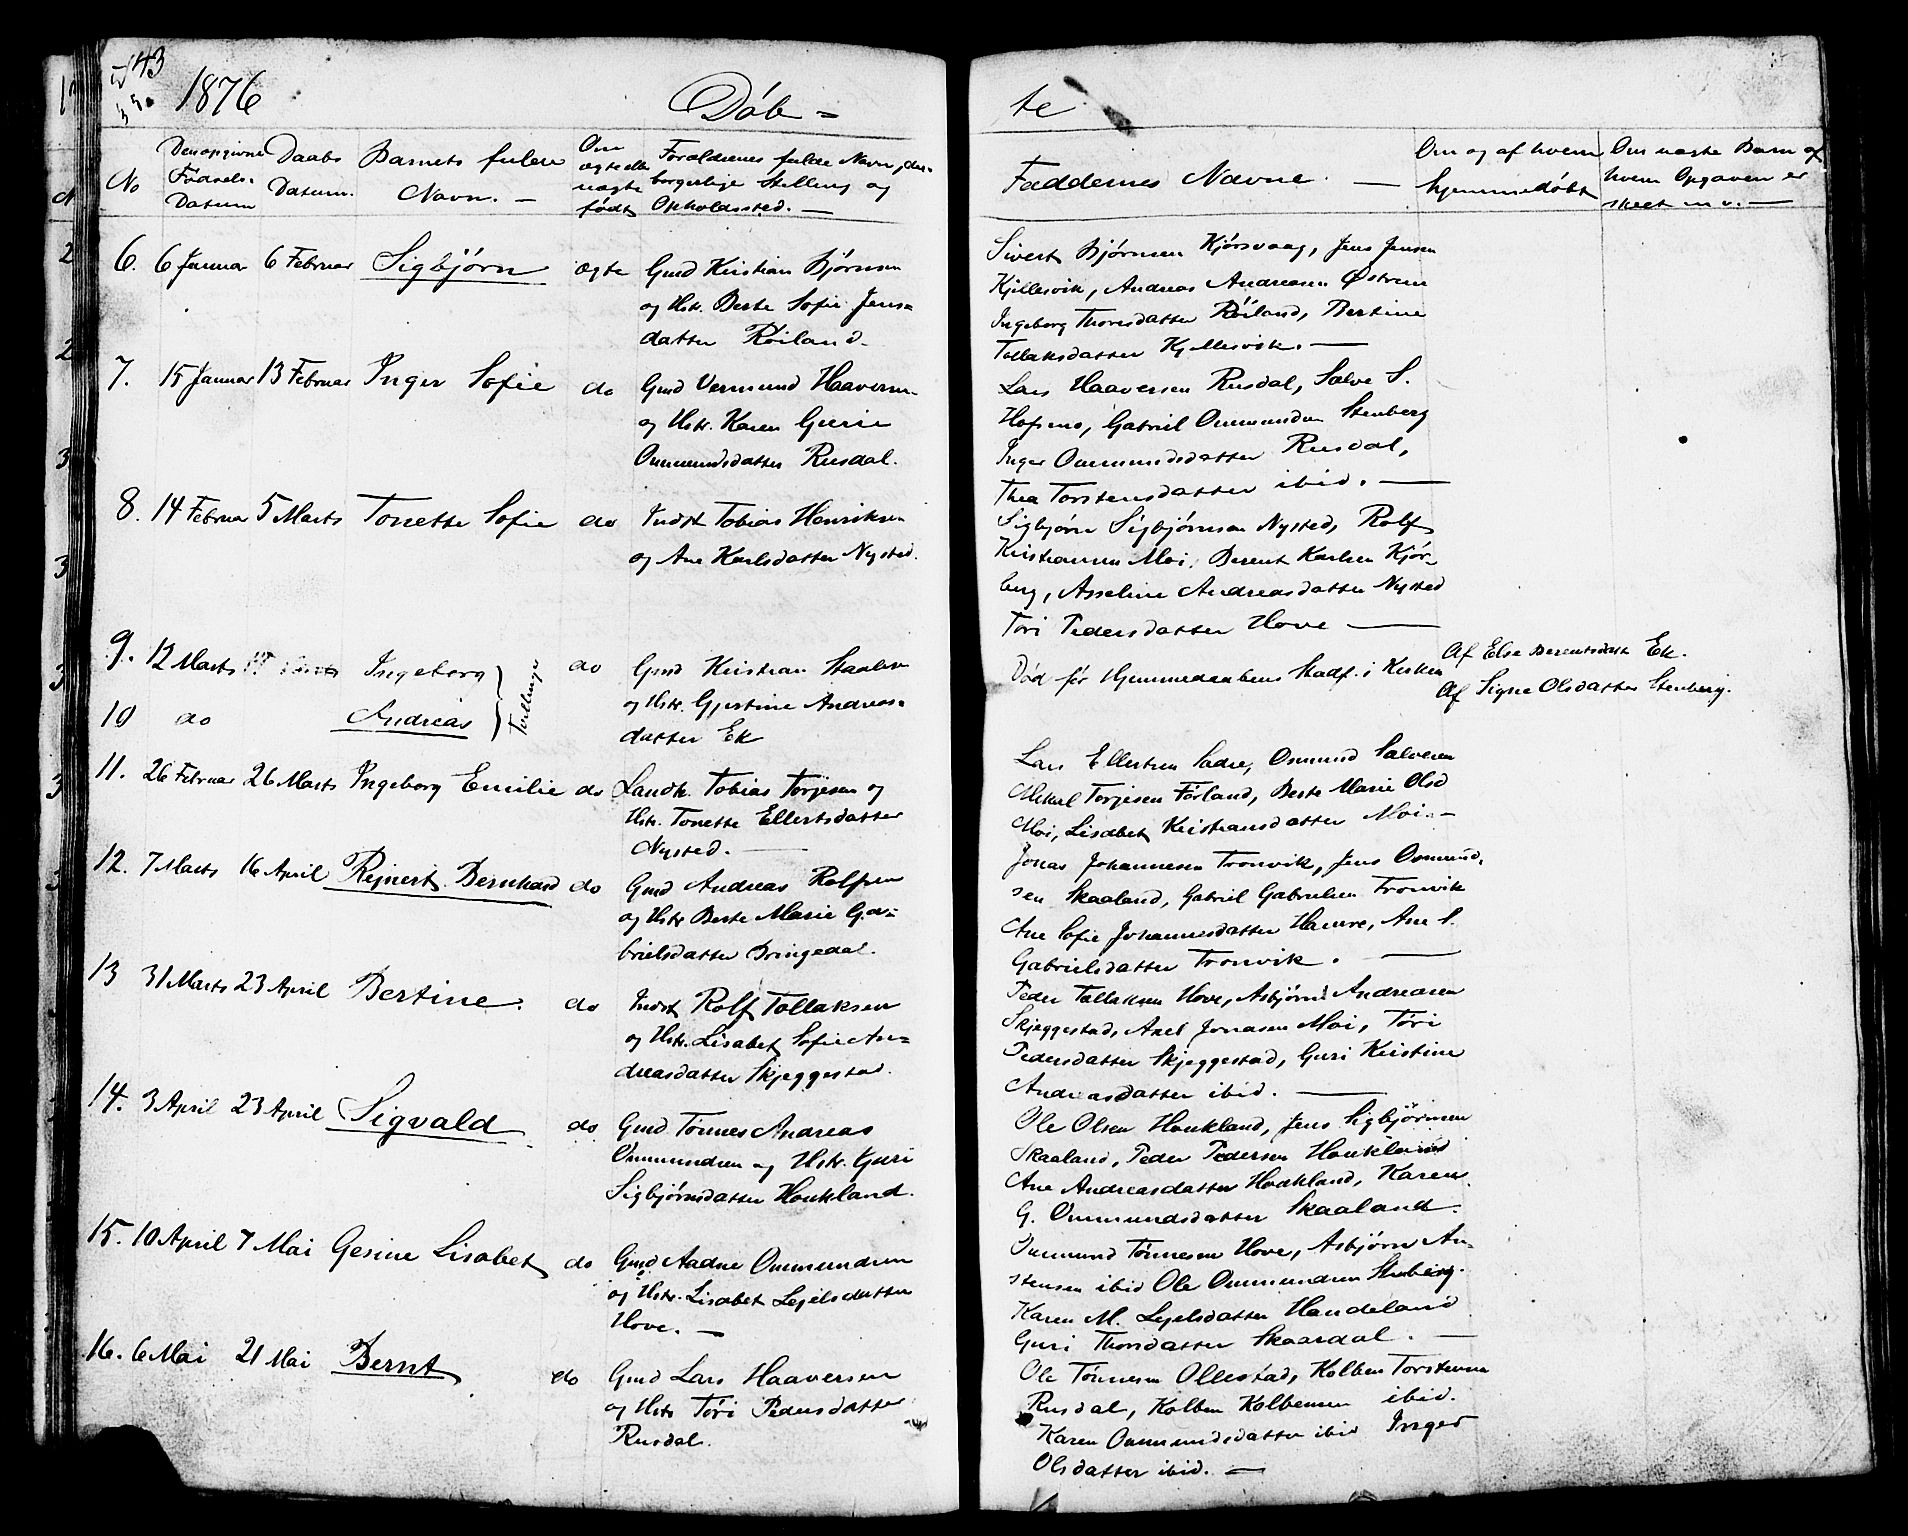 43
1876 Döb =
te
No
Den opgivne Fødsels- Datum
Daabs Datum.
Barnets fulde Navn. —
Om ægte eller uægte født
Forældrenes fulde Navn, des- borgerlige Stilling og Opholdssted. —
Faddernes Navne. —
Om og af hvem hjemmedøbt
Om uægte Barn af hvem Opgaven er skeet m v. —
6. 6 Januar 6 Februar Sigbjørn ægte Gmd Kristian Bjørnsen
og Hstr. Berte Sofie Jens-
datter Röiland.
Sivert Bjørnsen Kjörsvaag, Jens Jensen
Kjillesvik, Andreas Andreasen Østrem
Ingeborg Thoresdatter Röiland, Bertine
Tollaksdatter Kjellesvik. —
7. 15 Januar 13 Februar Inger Sofie do Gmd Vermund Haaversen
og Hstr. Karen Gurie
Ommundsdatter Rusdal.
Lars Haaversen Rusdal, Salve S.
Gabriel Ommundsen Stenberg
Inger Ommundsdatter Rusdal,
Thea Torstensdatter ibid. —
8. 14 Februar 5 Marts Tonette Sofie do Indst Tobias Henriksen
og Ane Karlsdatter Nysted.
Sigbjörn Sigbjörnsen Nysted, Rolf
Kristiansen Moi, Berent Karlsen Kjör-
berg, Asseline Andreasdatter Nysted
Töri Pedersdatter Hove —
9. 12 Marts Ingeborg do Gmd Kristian Staalesen
10 do Andreas } Tvillinger
og Hstr. Gjertine Andreas-
datter Ek
Död för Hjemmedaabens Stadf. i Kirken
Af Else Berentsdatt Ek.
Af Signe Olsdatter Stenberg.
11. 26 Februar 26 Marts Ingeborg Emilie do Landh. Tobias Torjesen og
Hstr. Tonette Ellertsdatter
Nysted. —
Lars Ellertsen Sadre, Osmund Salvesen
Mikal Torjesen Förland, Berte Marie Olsd
Moi, Lisabet Kristiansdatter Moi. —
12. 7 Marts 16 April Rejnert Bernhard do Gmd Andreas Rolfsen
og Hstr Berte Marie Ga-
brielsdatter Dringedal.
Jonas Johannesen Tronvik, Jens Osmund-
sen Skaaland, Gabriel Gabrielsen Tronvik
Ane Sofie Johannesdatter Hamre, Ane S.
Gabrielsdatter Tronvik. —
13 31 Marts 23 April Bertine. do Indst Rolf Tollaksen
og Hstr. Lisabet Sofie An-
dreasdatter Skjeggestad.
Peder Tollaksen Hove, Asbjörn Andreasen
Skjeggestad, Axel Jonasen Moi, Töri
Pedersdatter Skjeggestad, Guri Kristine
Andreasdatter ibid. —
14. 3 April 23 April Sigvald do Gmd. Tönnes Andreas
Ommundsen og Hstr. Guri
Sigbjörnsdatter Houkland.
Ole Olsen Houkland, Jens Sigbjörnsen
Skaaland, Peder Pedersen Houkland
Ane Andreasdatter Houkland, Karen
G. Ommundsdatter Skaaland.
15. 10 April 7 Mai Gesine Lisabet do Gmd Aadne Ommundsen
og Hstr. Lisabet Lejelsdatter
Hove. —
Ommund Tönnesen Hove, Asbjörn An-
stensen ibid Ole Ommundsen Stenberg.
Karen M. Lejelsdatter Haudeland
Guri Thorsdatter Skaardal. —
16. 6 Mai 21 Mai Bernt do Gmd Lars Haaversen
og Hstr Töri Pedersdatter
Rusdal.
Ole Tönnesen Ollestad, Kolben Torstensen
Rusdal, Kolben Kolbensen ibid.
Karen Ommundsdatter ibid Inger
Olsdatter ibid. —